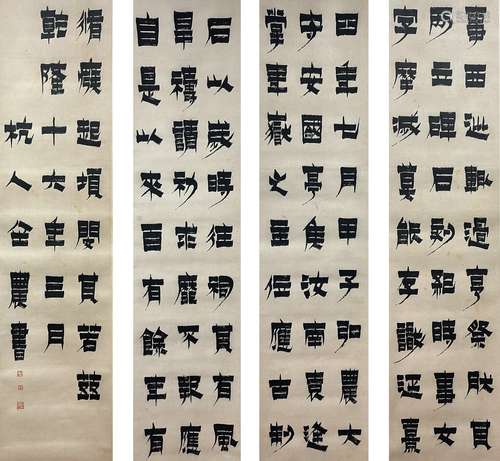 事西巡輒過亨祭然其
所立碑石刻紀時事文
字摩滅莫能存識延熹
四年七月甲子弘農大
守安國亭侯汝南袁逢
掌華嶽之主位應古制
石以歲時往祠其有風
旱禱請祈求靡不報應
自是以來百有餘年有
脩癈起頓閔其若茲
乾隆十六年三月
杭人金農書